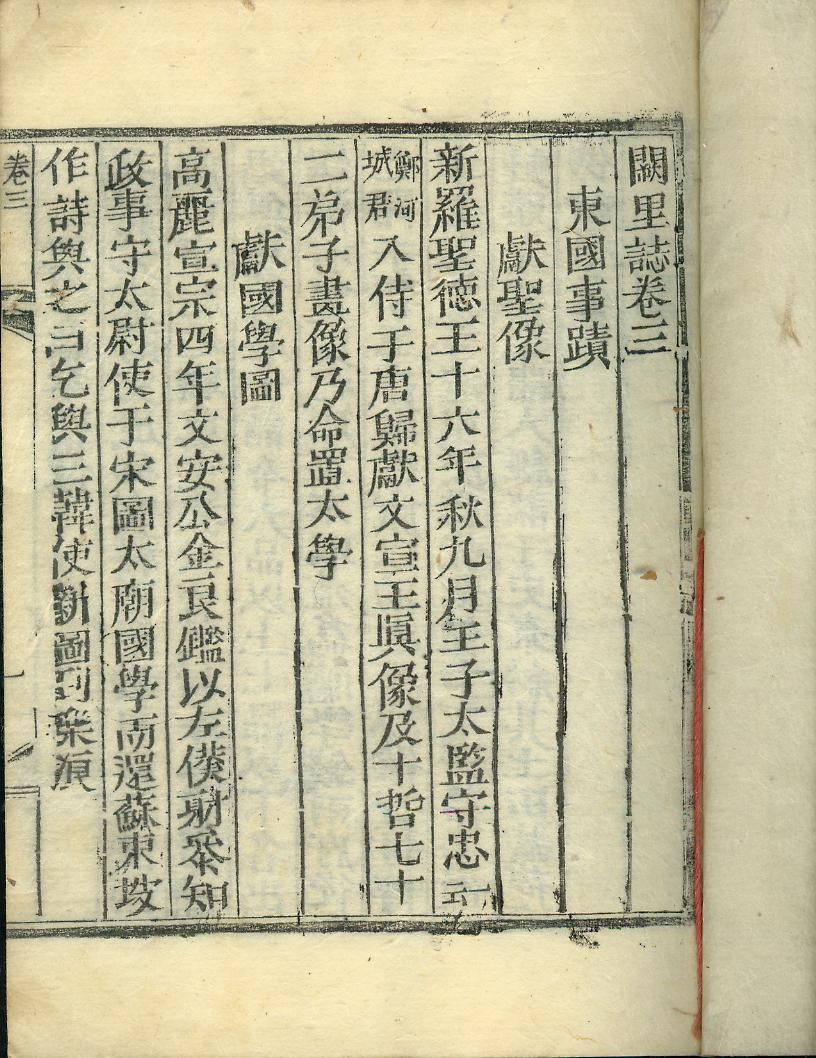 闕里誌卷三
東國事蹟
獻聖像
新羅聖德王十六年秋九月王子太監守忠一云
鄭河城君入侍于唐歸獻文宣王眞像及十哲七十
二弟子畫像乃命置太學
獻國學圖
高麗宣宗四年文安公金良鑑以左僕射叅知
政事守太尉使于宋圖太廟國學而還蘇東坡
作詩與之曰乞與三韓使新圖到樂浪
卷三
一